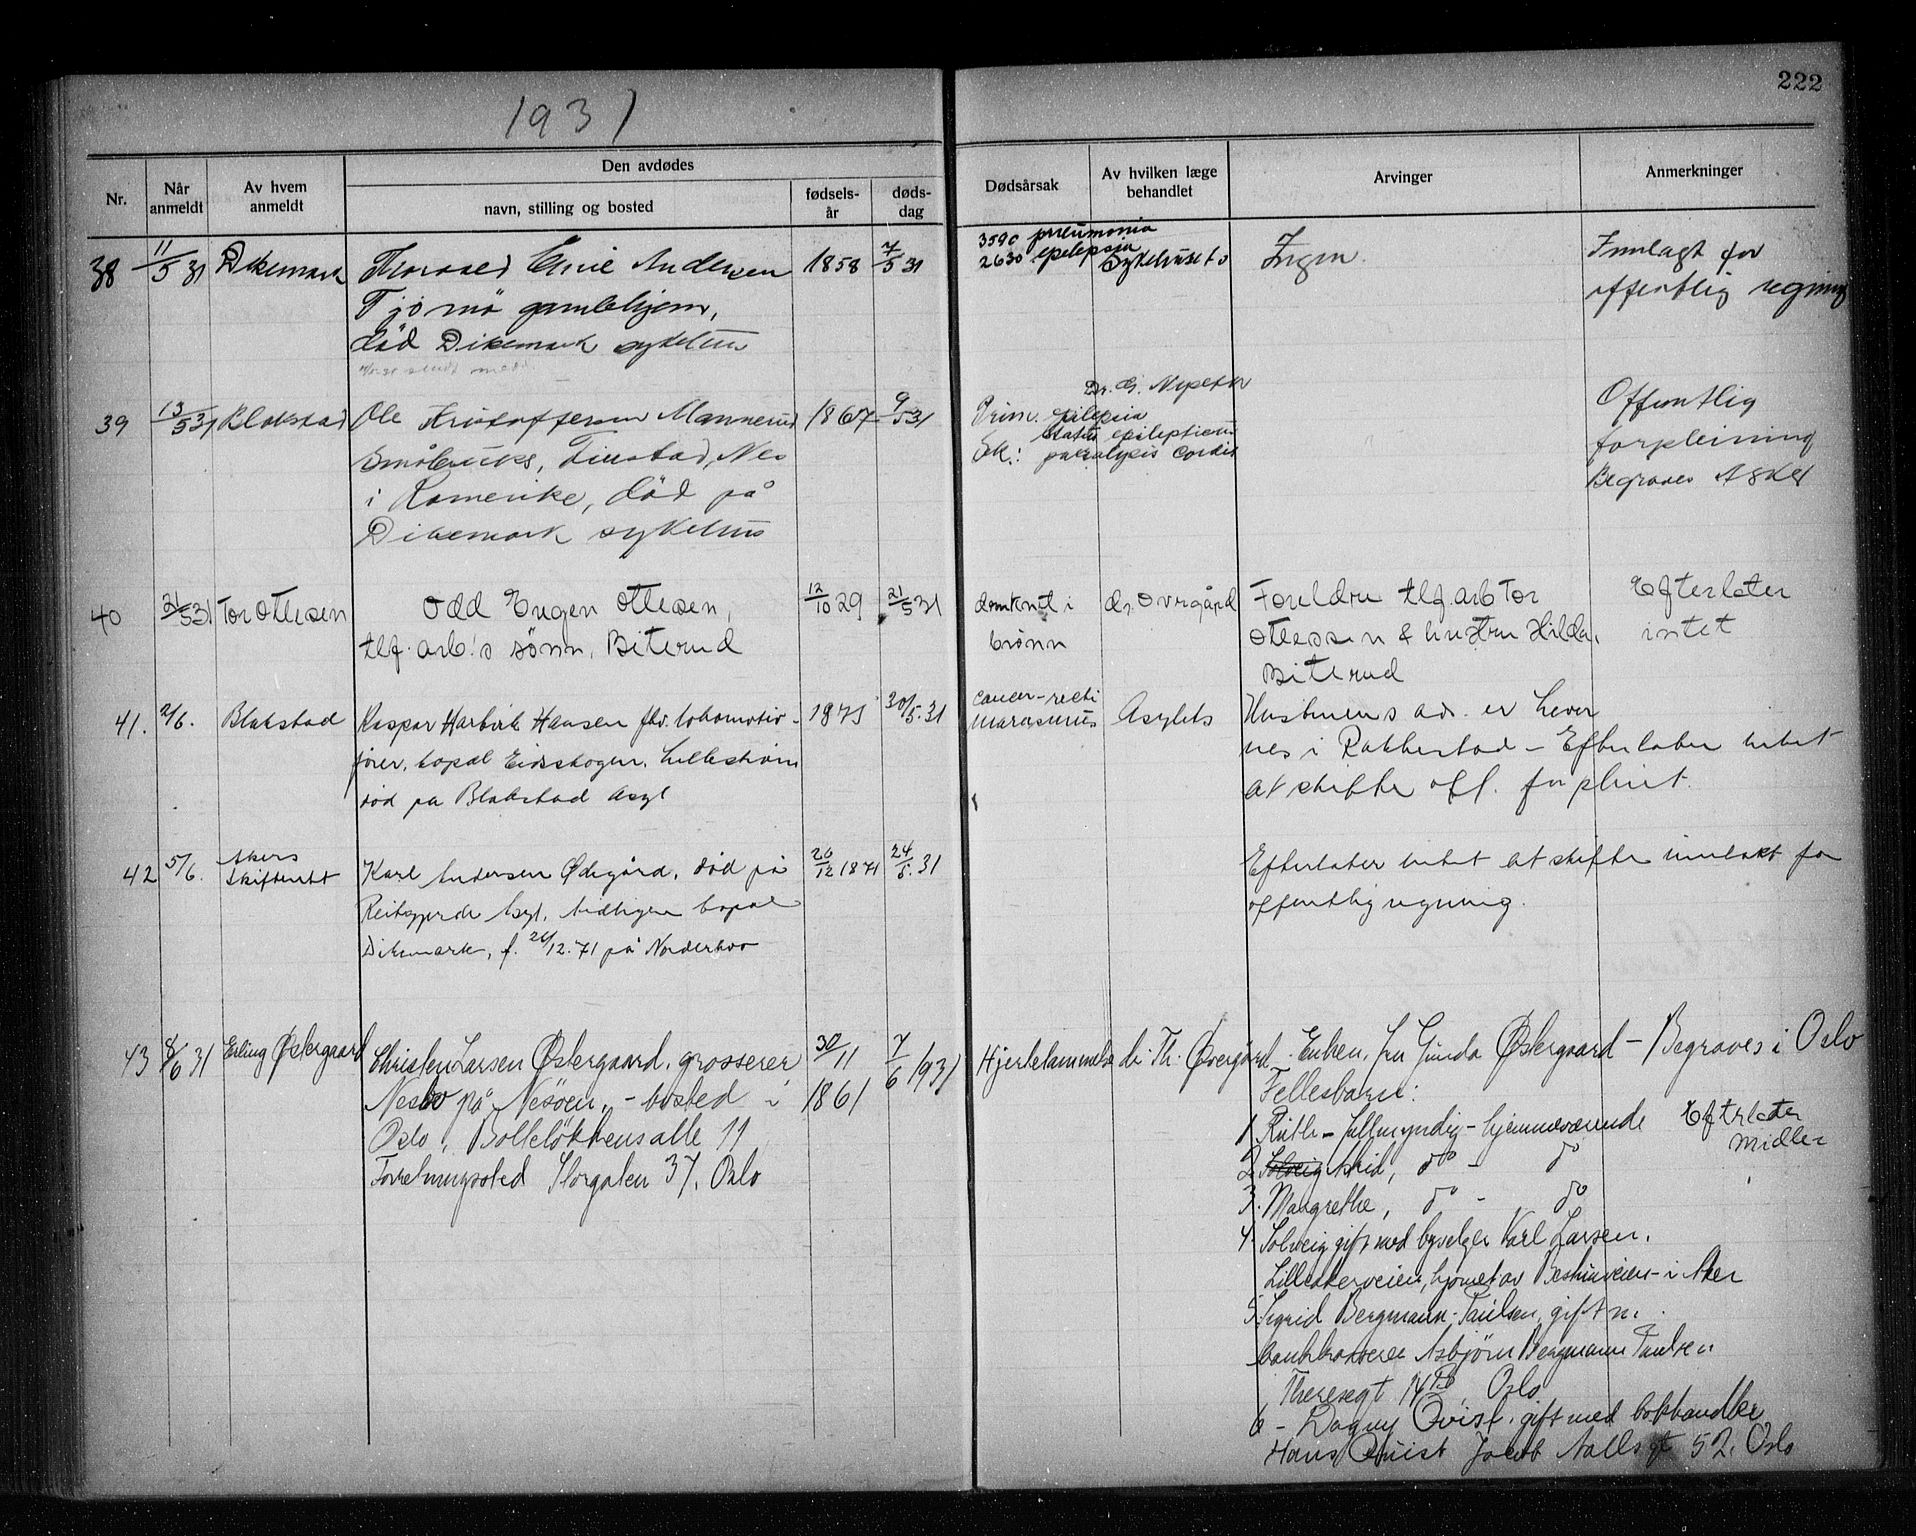 222
1931
Nr.
Når anmeldt
Av hvem anmeldt
Den avdødes
navn, stilling og bosted
fødsels-år
døds-dag
Dødsårsak
Av hvilken læge behandlet
Arvinger
Anmerkninger
38 11/5 31 Dikemark Andersen 1858 7/5 31 3590 pneumonia
2630 epilepsia Sykehusets Ingen. Innlagt for
Tjömö gamlehjem, offentlig regning
död Dikemark sykehus
39 13/5 31 Blakstad Ole Kristoffersen 1867 9/5 31 Prim. epilepsia Dr. G. Offentlig
Nes status epilepticus forpleining
i Romerike, död på Sek.: paralysis cordis Begraves Asker
Dikemark sykehus
40 21/5 31 Tor Ottesen Odd Eugen Ottesen, 12/10 29 21/5 31 druknet i dr. Overgård Foreldre tlf.arb Tor Efterlater
tlf. arb.'s sönn, Biterud brönn Ottesen & hustru Hilda, intet
Biterud
41. 2/6. Blakstad Kaspar Hansen fhv. lokomotiv- 1875 30/5.31 cancer-recti marasmus Asylets Hustruens ad. er
fører, bopæl Eidskogen, Lillestrøm i Rakkestad - Efterlater intet
død på Blakstad Asyl at skifte off. forpleiet.
42 5/6. Akers Skifterett Karl Andersen Ødegård, død på 26/12 1871 24/5.31 Efterlater intet at skifte innlakt for
Reitgjerde Asyl, tidligere bopæl offentlig regning.
Dikemark, f. 26/12.71 på Norderhov
43 8/6 31 Erling Østergaard Christen Larsen Østergaard, grosserer 30/11 1861 7/6 1931 Hjertelammelse dr. Th. Øvergård Enken, fru Gunda Østergaard - Begraves i Oslo
Nesbo på Nesøen, - bosted i Fellesbarn:
Oslo, Bolteløkkens alle 11 1 Ruth - fullmyndig - hjemmeværende Efterlater midler
Forretningssted Storgaten 37, Oslo 2 Solveig Astrid, do - do
3. Margrethe, do - do
4. Solveig gift med Karl Larsen,
Lilleakerveien, hjørnet av i Aker
5. Sigrid Bergmann-Paulsen, gift m.
Asbjørn Bergmann Paulsen
Theresegt 14B, Oslo
6 - Dagny Qvist, gift med bokhandler
Hans Qvist Jacob Aallsgt 52, Oslo